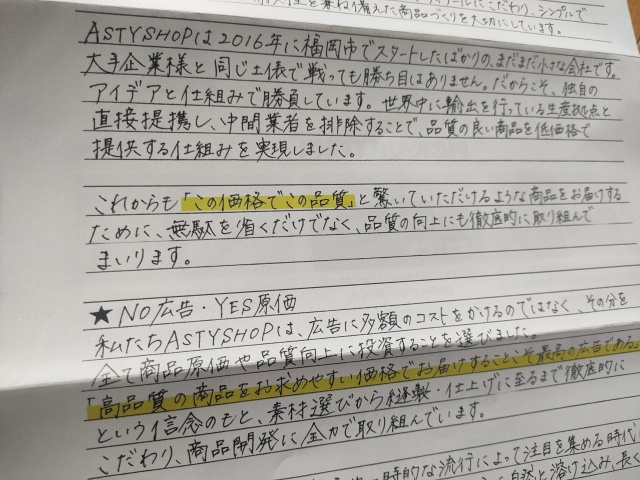 兼ね備えた商品づくりを大切にしています。
にこだわり、シンプルで
ASTYSHOPは2016年に福岡市でスタートしたばかりの、まだまだ小さな会社です。
大手企業様と同じ土俵で戦っても勝ち目はありません。だからこそ、独自の
アイデアと仕組みで勝負しています。世界中に輸出を行っている生産拠点と
直接提携し、中間業者を排除することで、品質の良い商品を低価格で
提供する仕組みを実現しました。
これからも「この価格でこの品質」と驚いていただけるような商品をお届けする
ために、無駄を省くだけでなく、品質の向上にも徹底的に取り組んで
まいります。
★NO広告・YES原価
私たちASTYSHOPは、広告に多額のコストをかけるのではなく、その分を
全て商品原価や品質向上に投資することを選びました。
「高品質の商品をお求めやすい価格でお届けすることこそ最高の広告である」
という信念のもと、素材選びから縫製・仕上げに至るまで徹底的に
こだわり、商品開発に全力で取り組んでいます。
時的な流行によって注目を集める時代
自然と溶け込み、長く